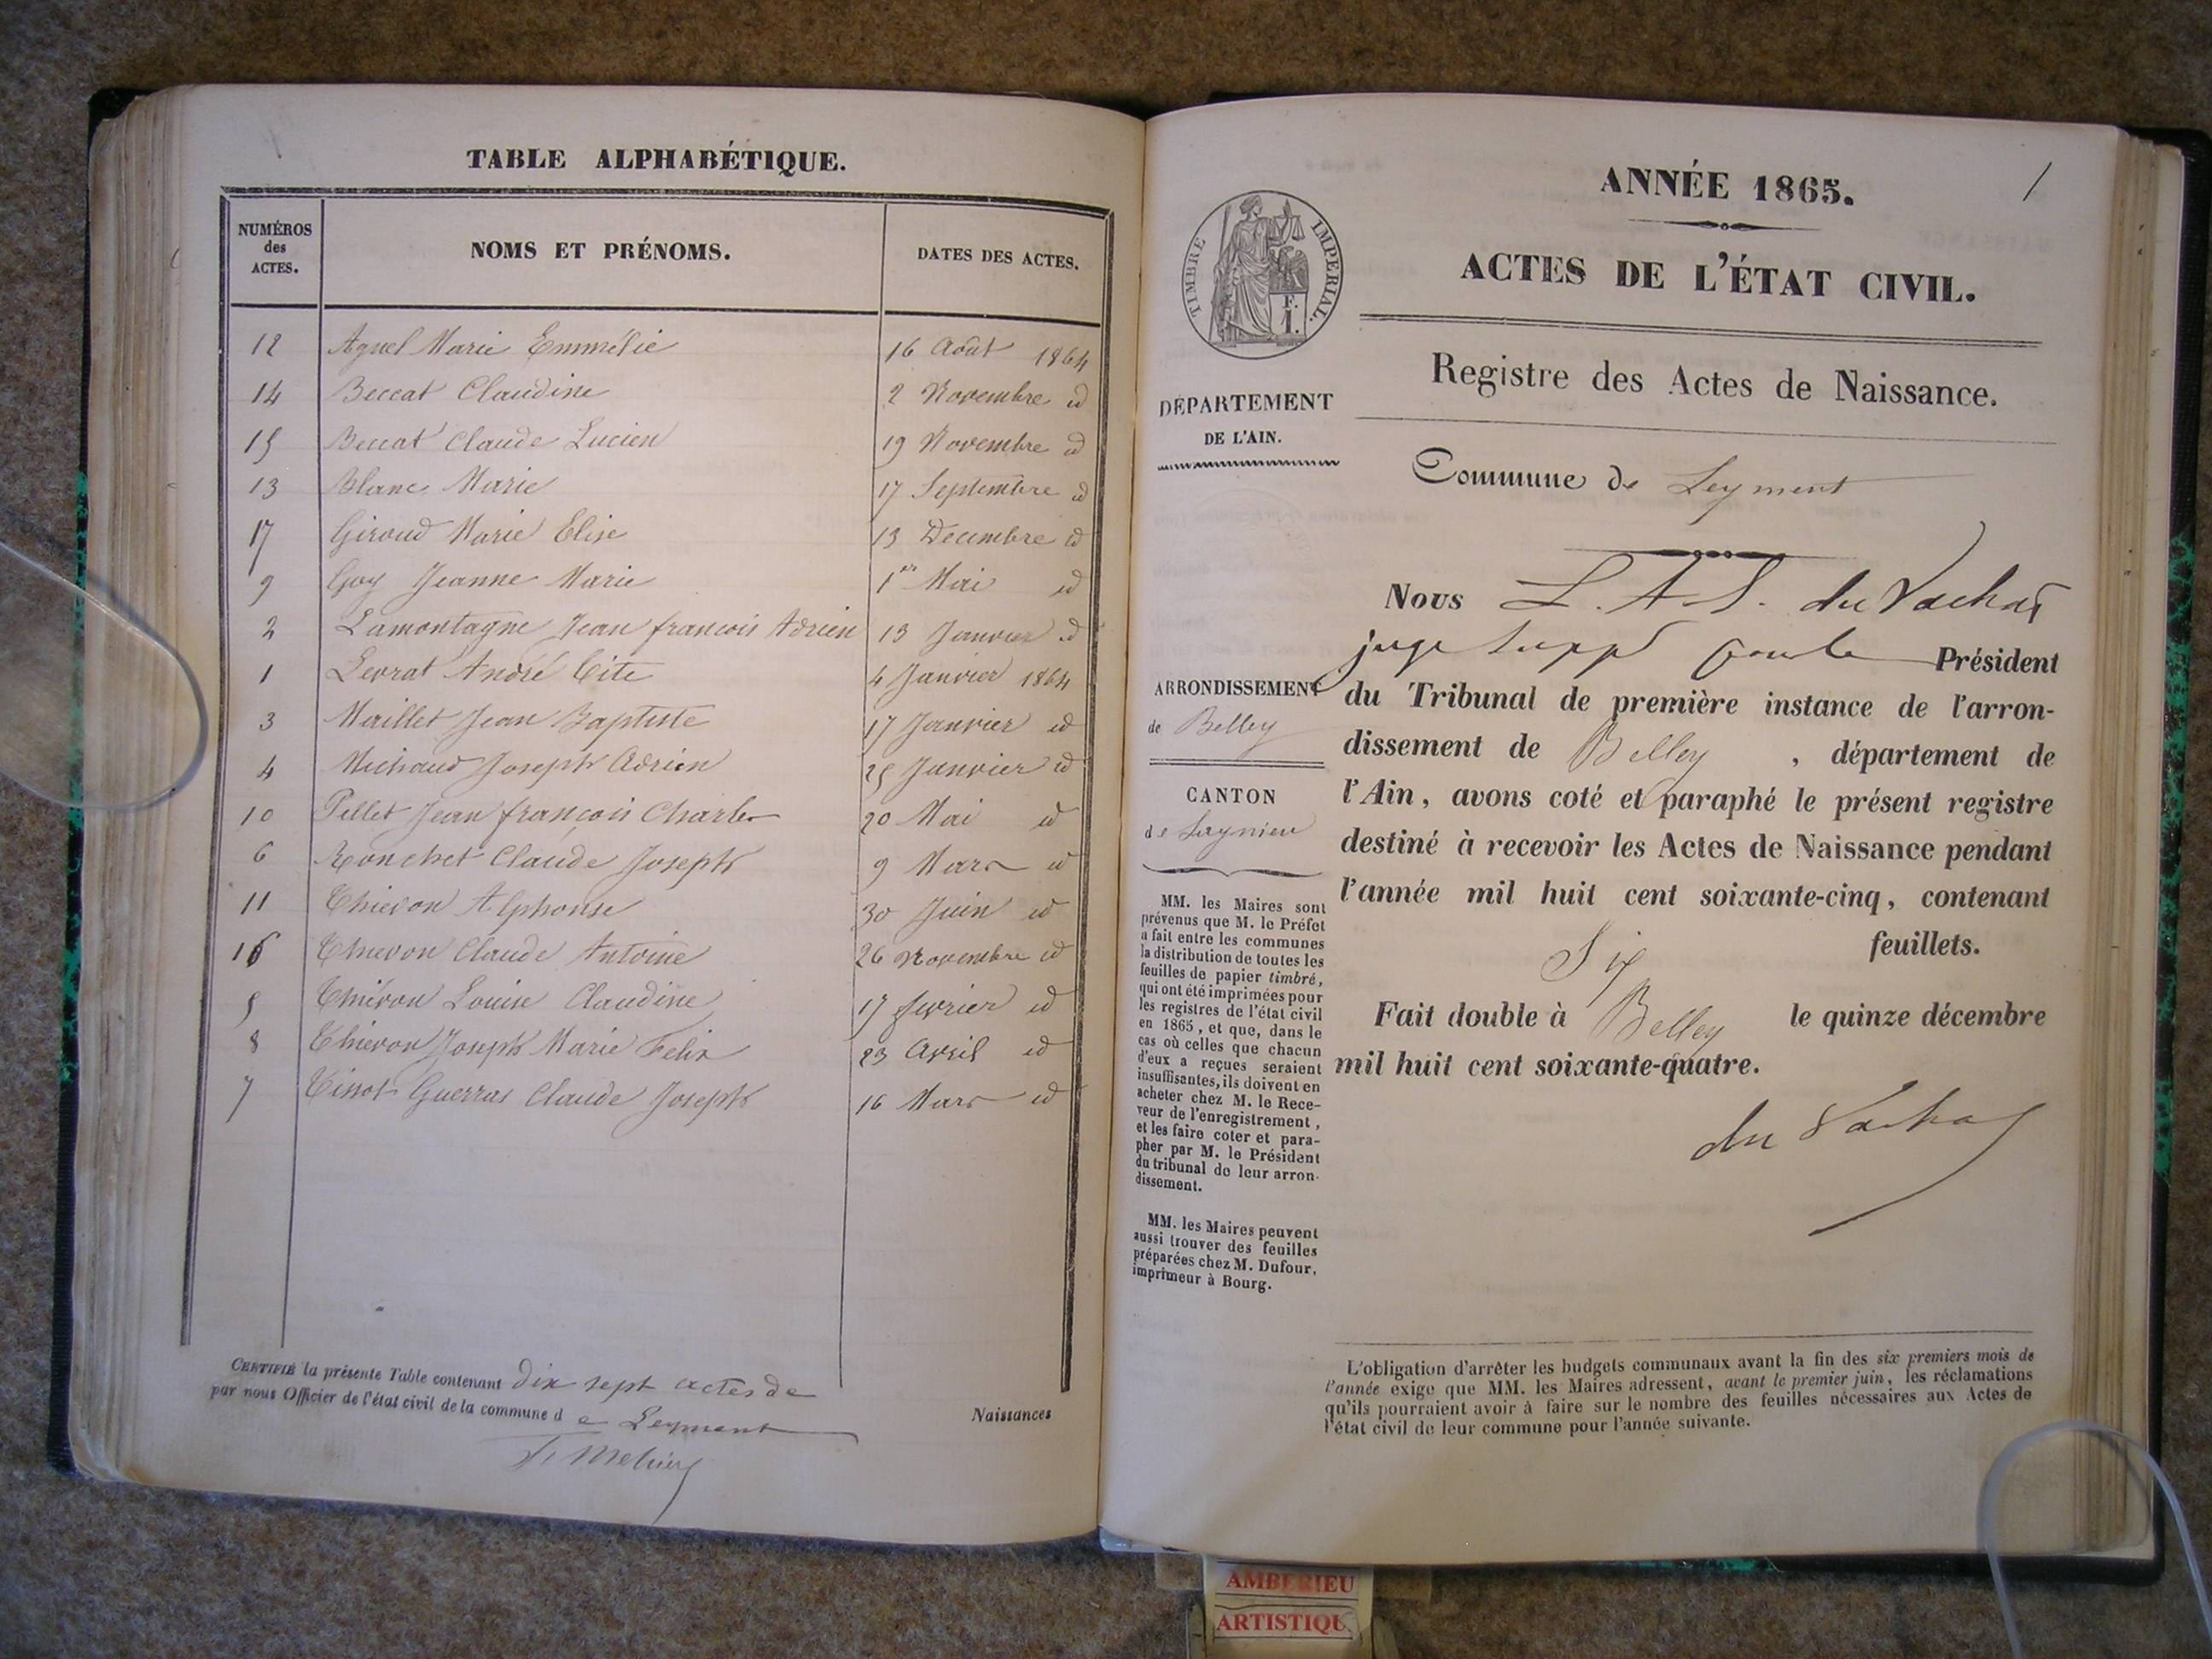 TABLE ALPHABÉTIQUE.
NUMÉROS des ACTES.
NOMS ET PRÉNOMS.
DATES DES ACTES.
12 Agnel Marie Emmélie 16 Août 1864
14 Beccat Claudine 2 Novembre id
15 Beccat Claude Lucien 19 Novembre id
13 Blanc Marie 17 Septembre id
17 Giroud Marie Elise 13 Decembre id
9 Goy Jeanne Marie 1er Mai id
2 Lamontagne Jean francois Adrien 13 Janvier id
1 Levrat André Tite 4 Janvier 1864
3 Maillet Jean Baptiste 17 Janvier id
4 Michaud Joseph Adrien 25 Janvier id
10 Pellet Jean françois Charles 20 Mai id
6 Ronchet Claude Joseph 9 Mars id
11 Thievon Alphonse 30 Juin id
16 Thievon Claude Antoine 26 Novembre id
5 Thiévon Louise Claudine 17 fevrier id
8 Thievon Joseph Marie Felix 23 Avril id
7 Tissot Guerraz Claude Joseph 16 Mars id
CERTIFIÉ la présente Table contenant dix sept actes de
Naissances
par nous Officier de l'état civil de la commune d e Leyment
ANNÉE 1865.
1
ACTES DE L'ÉTAT CIVIL.
TIMBRE IMPERIAL.
F.
1.
Registre des Actes de Naissance.
DÉPARTEMENT
DE L'AIN.
Commune de Leyment
Nous L. A. S. du Vachat
juge suppt pour le Président
du Tribunal de première instance de l'arron-
dissement de Belley , département de
l'Ain, avons coté et paraphé le présent registre
destiné à recevoir les Actes de Naissance pendant
l'année mil huit cent soixante-cinq, contenant
Six feuillets.
Fait double à Belley le quinze décembre
mil huit cent soixante-quatre.
du Vachat
ARRONDISSEMENT
de Belley
CANTON
de Lagnieu
MM. les Maires sont
prévenus que M. le Préfet
a fait entre les communes
la distribution de toutes les
feuilles de papier timbré,
qui ont été imprimées pour
les registres de l'état civil
en 1865, et que, dans le
cas où celles que chacun
d'eux a reçues seraient
insuffisantes, ils doivent en
acheter chez M. le Rece-
veur de l'enregistrement,
et les faire coter et para-
pher par M. le Président
du tribunal de leur arron-
dissement.
MM. les Maires peuvent
aussi trouver des feuilles
préparées chez M. Dufour,
imprimeur à Bourg.
L'obligation d'arrêter les budgets communaux avant la fin des six premiers mois de
l'année exige que MM. les Maires adressent, avant le premier juin, les réclamations
qu'ils pourraient avoir à faire sur le nombre des feuilles nécessaires aux Actes de
l'état civil de leur commune pour l'année suivante.
AMBERIEU
ARTISTIQUE